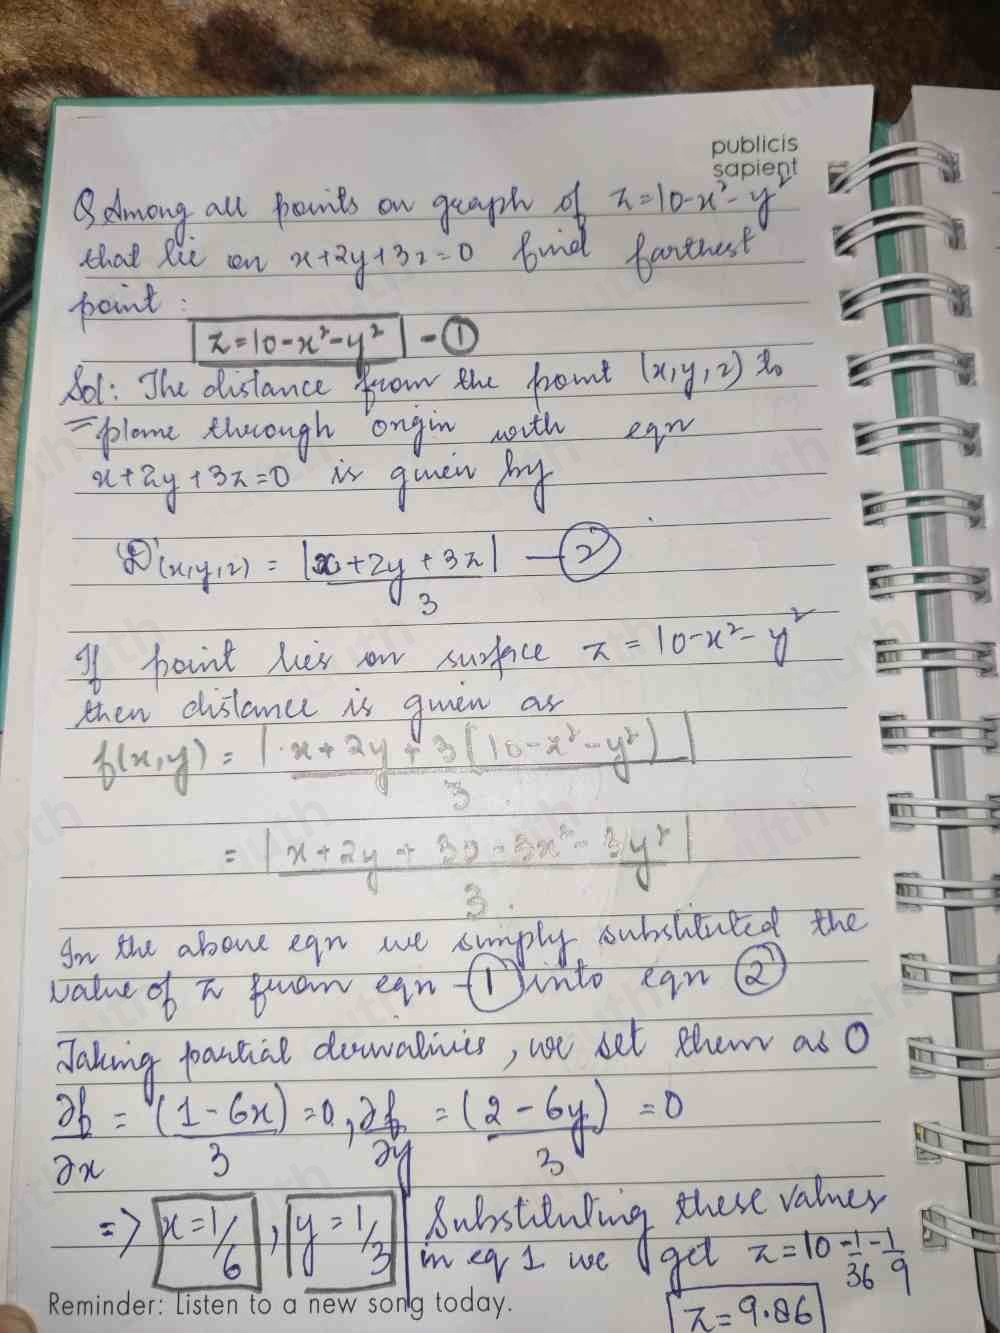 publicis
sapient
Q. Among all points on graph of z=10-x²-y²
that lie on x+2y+3z=0 find farthest
point:
z=10-x²-y² - ①
Sol: The distance from the point (x,y,z) to
plane through origin with eqn
x+2y+3z=0 is given by
D(x,y,z) = |x+2y+3z| / 3 - ②
If point lies on surface z = 10-x²-y²
then distance is given as
f(x,y) = |x+2y+3(10-x²-y²)| / 3
= |x+2y+30-3x²-3y²| / 3
In the above eqn we simply substituted the
value of z from eqn - ① into eqn ②
Taking partial derivatives, we set them as 0
∂f/∂x = (1-6x)/3 = 0, ∂f/∂y = (2-6y)/3 = 0
=> x=1/6, y=1/3
Substituting these values
in eq 1 we get z=10-1/36-1/9
z=9.86
Reminder: Listen to a new song today.